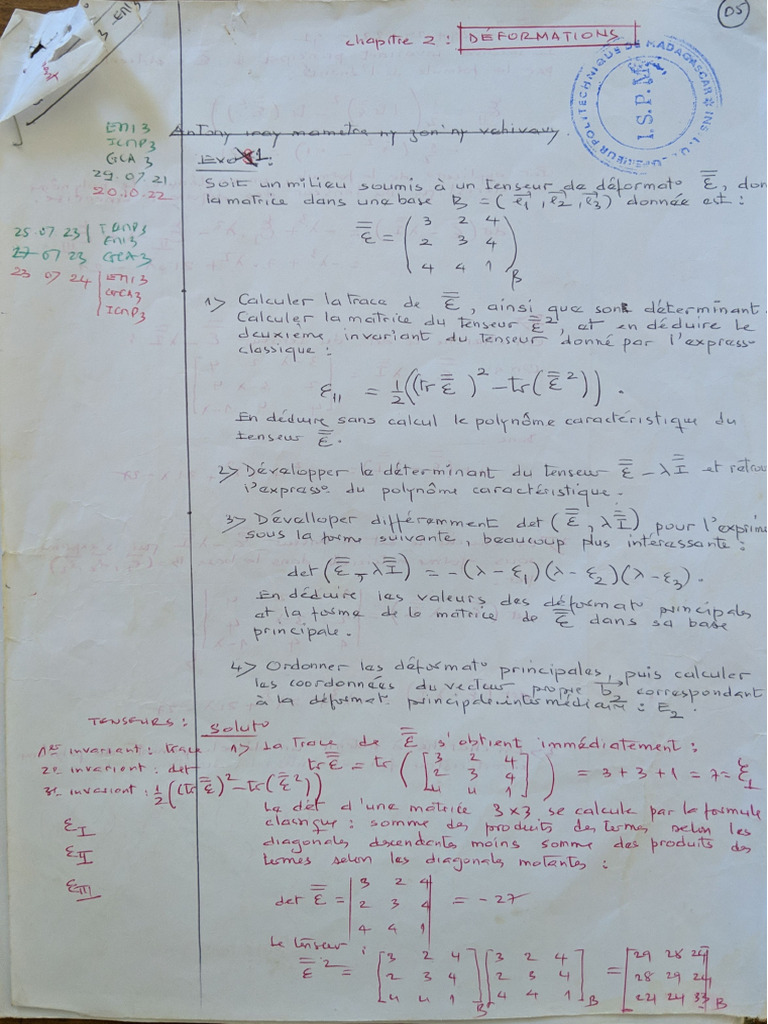 05
chapitre 2 : DÉFORMATIONS
INSTITUT SUPÉRIEUR POLYTECHNIQUE DE MADAGASCAR
I.S.P.M
EMI 3
ICMP3
GCA 3
29.07.21
20.10.22
25.07.23 | ICMP3
EMI3
27 07 23 GCA3
23 07 24 | EMI3
GCA3
ICMP3
Exo 1 :
Soit un milieu soumis à un tenseur de déformat° ε̿, don
la matrice dans une base B = (e₁, e₂, e₃) donnée est :
ε̿ = ( 3 2 4
2 3 4
4 4 1 ) B
1> Calculer la trace de ε̿, ainsi que son déterminant.
Calculer la matrice du tenseur ε̿², et en déduire le
deuxième invariant du tenseur donné par l'express°
classique :
ε_II = 1/2 ((tr ε̿)² - tr(ε̿²)) .
En déduire sans calcul le polynôme caractéristique du
tenseur ε̿.
2> Développer le déterminant du tenseur ε̿ - λI̿ et retrou
l'express° du polynôme caractéristique.
3> Dévelloper différemment det (ε̿, λI̿) pour l'exprime
sous la forme suivante, beaucoup plus intéressante :
det (ε̿ - λI̿) = -(λ - ε₁)(λ - ε₂)(λ - ε₃).
En déduire les valeurs des déformat° principales
et la forme de la matrice de ε̿ dans sa base
principale.
4> Ordonner les déformat° principales, puis calculer
les coordonnées du vecteur propre b₂ correspondant
à la déformat° principale intermédiaire : ε₂.
TENSEURS :
1er invariant : trace
2e invariant : det
3e invariant : 1/2 ((tr ε̿)² - tr(ε̿²))
ε_I
ε_II
ε_III
Solut°
1> La trace de ε̿ s'obtient immédiatement :
tr ε̿ = tr ( [ 3 2 4
2 3 4
4 4 1 ] ) = 3 + 3 + 1 = 7 = ε_I
Le dét d'une matrice 3×3 se calcule par la formule
classique : somme des produits des termes selon les
diagonales descendantes moins somme des produits des
termes selon les diagonales motantes :
det ε̿ = | 3 2 4
2 3 4
4 4 1 | = -27
Le tenseur :
ε̿² = [ 3 2 4
2 3 4
4 4 1 ] B [ 3 2 4
2 3 4
4 4 1 ] B = [ 29 28 24
28 29 24
24 24 33 ] B